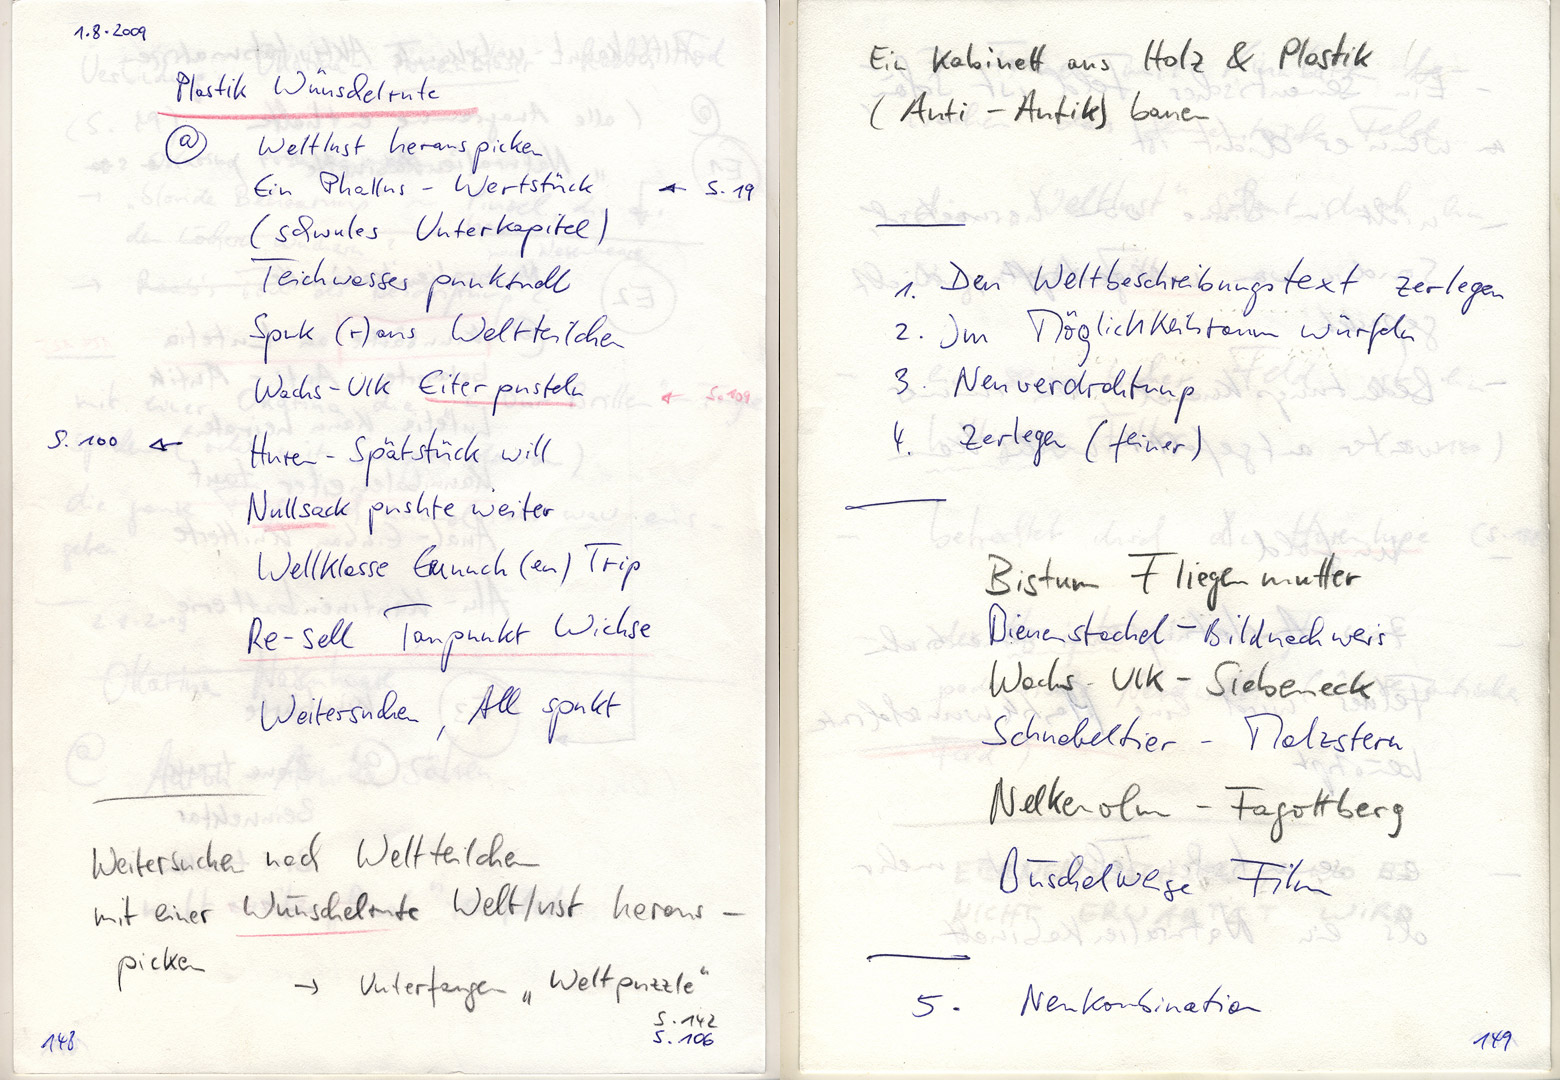 1.8.2009
Plastik Wünschelrute
@ Weltlust herauspicken
Ein Phallus - Wertstück ← S. 19
(schwules Unterkapitel)
Teichwasser punktuell
Spuk (r)aus Weltteilchen
Wachs-Ulk Eiterpusteln ← S. 109
S. 100 ← Huren - Spätstück will
Nullsack pushte weiter
Wellklasse Eunuch(en) Trip
Re-sell Tanpunkt Wichse
Weitersuchen, All spukt
Weitersuchen nach Weltteilchen
mit einer Wünschelrute Weltlust heraus-
picken
→ Unterfangen „Weltpuzzle“
S. 142
S. 106
148
Ein Kabinett aus Holz & Plastik
(Anti - Antik) bauen
1. Den Weltbeschreibungstext zerlegen
2. Im Möglichkeitsraum würfeln
3. Neuverdrahtung
4. Zerlegen (feiner)
Bistum Fliegenmutter
Bienenstachel - Bildnachweis
Wachs - Ulk - Siebeneck
Schnabeltier - Malzstern
Nelkenolm - Fagottberg
Büschelweise Film
5. Neukombination
149